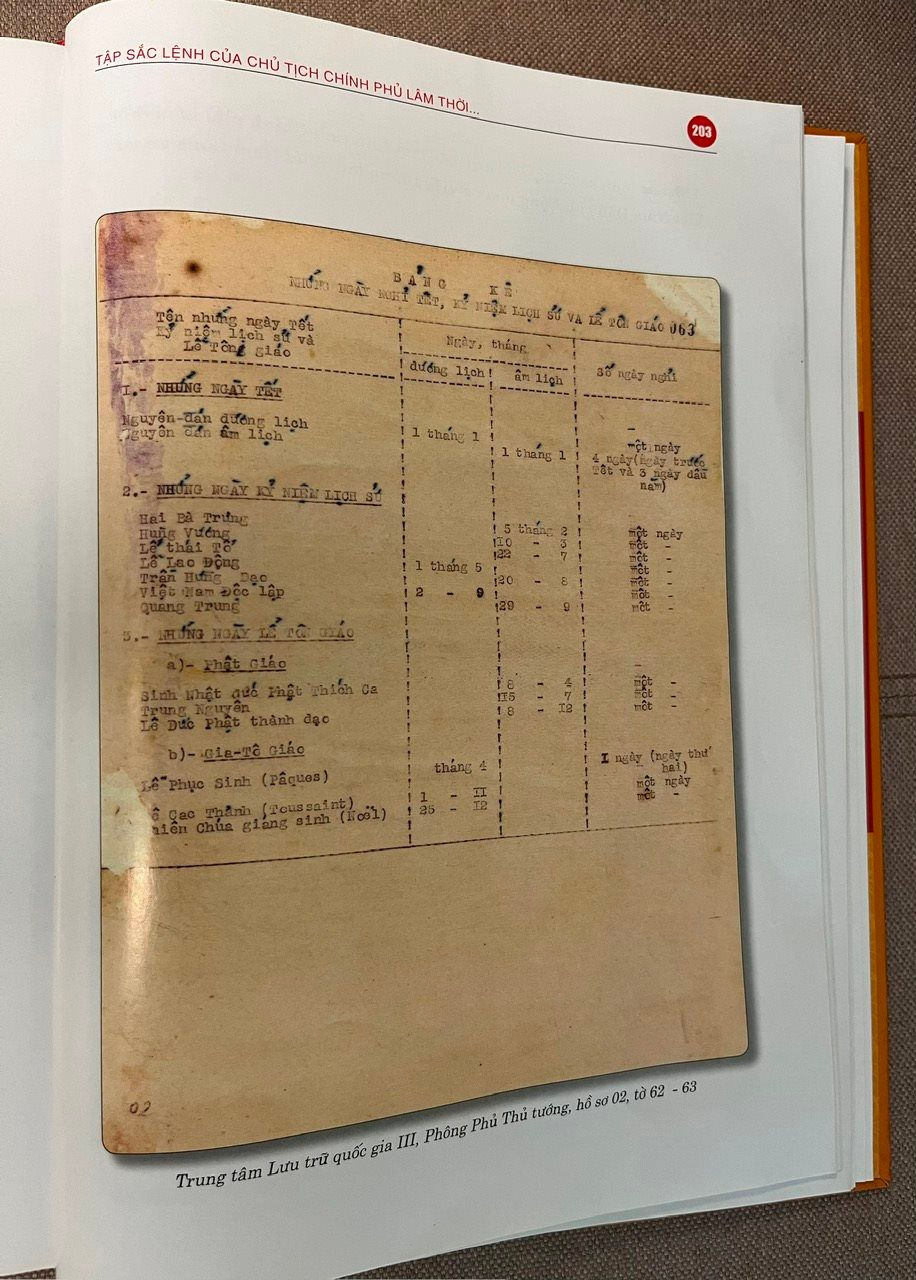 TẬP SẮC LỆNH CỦA CHỦ TỊCH CHÍNH PHỦ LÂM THỜI...
203
BẢNG KÊ
NHỮNG NGÀY NGHỈ TẾT, KỶ NIỆM LỊCH SỬ VÀ LỄ TÔN GIÁO 063
Tên những ngày Tết
Kỷ niệm lịch sử và
Lễ Tông giáo
Ngày, tháng
dương lịch
âm lịch
Số ngày nghỉ
1.- NHỮNG NGÀY TẾT
Nguyên-đán dương lịch 1 tháng 1 một ngày
Nguyên đán âm lịch 1 tháng 1 4 ngày(ngày trước
Tết và 3 ngày đầu
năm)
2.- NHỮNG NGÀY KỶ NIỆM LỊCH SỬ
Hai Bà Trưng 5 tháng 2 một ngày
Hùng Vương 10 - 3 một -
Lê thái Tổ 22 - 7 một -
Lễ Lao Động 1 tháng 5 một -
Trần Hưng Đạo 20 - 8 một -
Việt Nam Độc lập 2 - 9 một -
Quang Trung 29 - 9 một -
3.- NHỮNG NGÀY LỄ TÔN GIÁO
a)- Phật Giáo
Sinh Nhật đức Phật Thích Ca 8 - 4 một -
Trung Nguyên 15 - 7 một -
Lễ Đức Phật thành đạo 8 - 12 một -
b)- Gia-Tô Giáo
Lễ Phục Sinh (Pâques) tháng 4 I ngày (ngày thứ
hai)
Lễ Các Thánh (Toussaint) 1 - II một ngày
Thiên Chúa giáng sinh (Noël) 25 - I2 một -
02
Trung tâm Lưu trữ quốc gia III, Phông Phủ Thủ tướng, hồ sơ 02, tờ 62 - 63